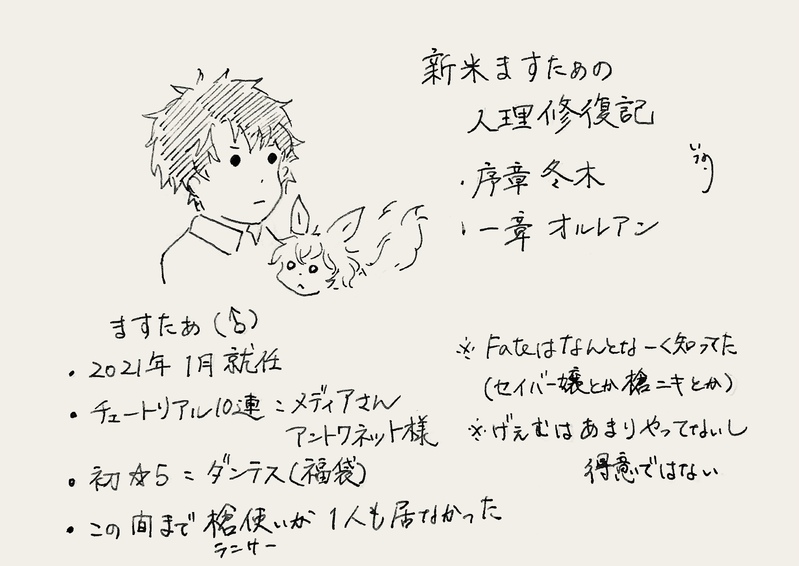 新米ますたぁの
人理修復記
・序章 冬木
・一章 オルレアン
ますたぁ(♂)
・2021年 1月 就任
・チュートリアル10連:メディアさん
アントワネット様
・初☆5 = ダンテス(福袋)
・この間まで 槍使いが 1人も居なかった
ランサー
※ Fateはなんとな〜く知ってた
(セイバー嬢とか 槍ニキとか)
※げえむは あまりやってないし
得意ではない